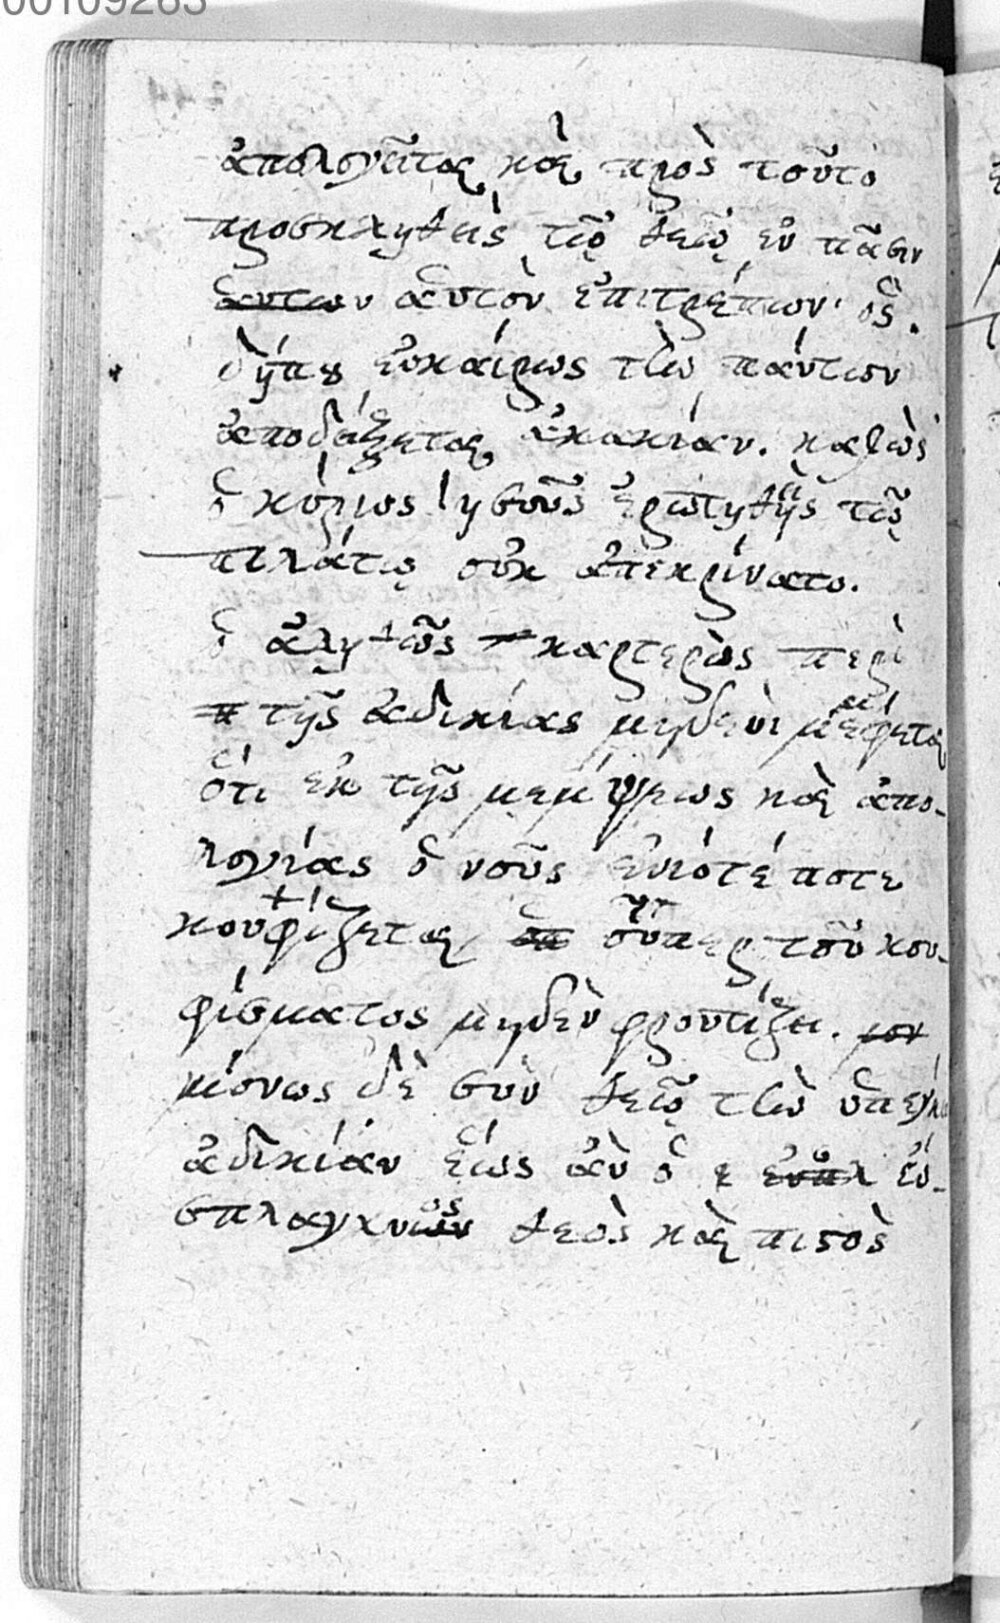 00109283
ἀπολογεῖται καὶ πρὸς τοῦτο
προσκληθεὶς τῷ θεῷ ἐν πᾶσιν
ἑαυτὸν ἐπιτρέπων· ὃς
δήπου εὐκαίρως τὴν πάντων
ἀποδείξεται ἀκακίαν. καθὼς
ὁ κύριος Ἰησοῦς ἐρωτηθεὶς τῷ
πιλάτῳ οὐκ ἀπεκρίνατο.
ὁ ἀληθῶς καρτερὸς περὶ
τῆς ἀδικίας μηδενὶ μέμφεται
ὅτι ἐκ τῆς μέμψεως καὶ ἀπο-
λογίας ὁ νοῦς ἐνιότέ ποτε
κουφίζεται οὗπερ τοῦ κου-
φίσματος μηδὲν φροντίζει.
μόνως δὲ σὺν θεῷ τὴν
ἀδικίαν ἕως ἂν ὁ εὐ-
σπλαγχνος θεὸς καὶ πιστὸς